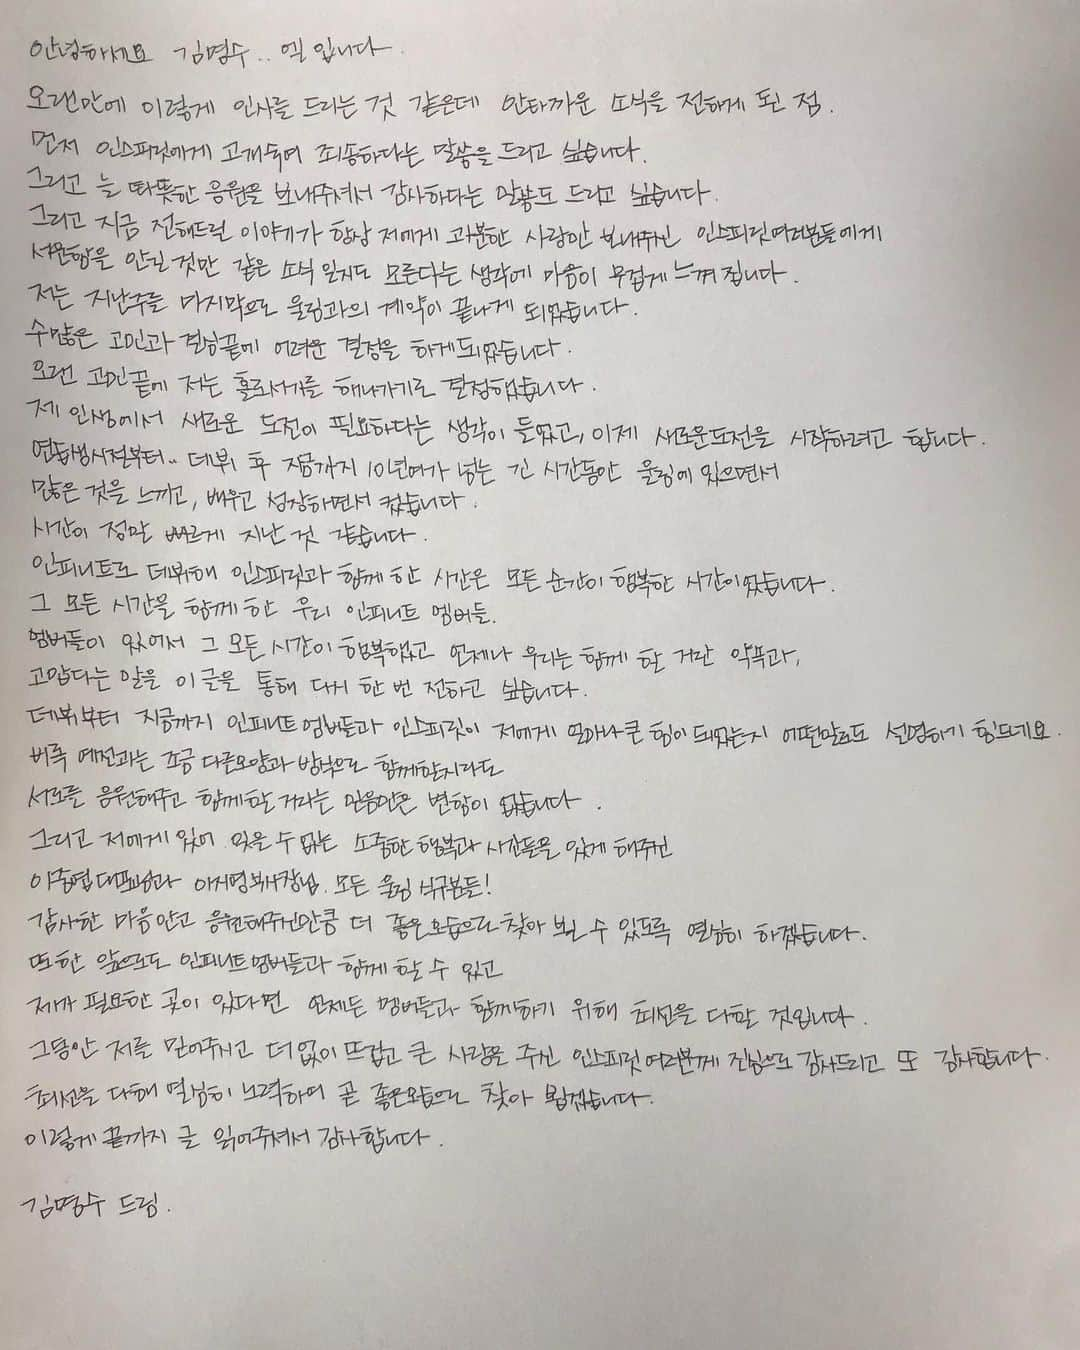 안녕하세요 김명수.. 엘입니다.
오랜만에 이렇게 인사를 드리는 것 같은데 안타까운 소식을 전하게 된 점.
먼저 인스피릿에게 고개숙여 죄송하다는 말씀을 드리고 싶습니다.
그리고 늘 따뜻한 응원을 보내주셔서 감사하다는 말씀도 드리고 싶습니다.
그리고 지금 전해드릴 이야기가 항상 저에게 과분한 사랑만 보내주신 인스피릿여러분들에게
서운함을 안길 것만 같은 소식 일지도 모른다는 생각에 마음이 무겁게 느껴집니다.
저는 지난주를 마지막으로 울림과의 계약이 끝나게 되었습니다.
수많은 고민과 결심끝에 어려운 결정을 하게되었습니다.
오랜 고민끝에 저는 홀로서기를 해나가기로 결정했습니다.
제 인생에서 새로운 도전이 필요하다는 생각이 들었고, 이제 새로운도전을 시작하려고 합니다.
연습생시절부터.. 데뷔 후 지금까지 10년여가 넘는 긴 시간동안 울림에 있으면서
많은 것을 느끼고, 배우고 성장하면서 컸습니다.
시간이 정말 빠르게 지난 것 같습니다.
인피니트로 데뷔해 인스피릿과 함께 한 시간은 모든 순간이 행복한 시간이었습니다.
그 모든 시간을 함께 한 우리 인피니트 멤버들.
멤버들이 있어서 그 모든 시간이 행복했고 언제나 우리는 함께 할 거란 약속과,
고맙다는 말을 이 글을 통해 다시 한 번 전하고 싶습니다.
데뷔부터 지금까지 인피니트멤버들과 인스피릿이 저에게 얼마나 큰 힘이 되었는지 어떤말로도 설명하기 힘드네요.
비록 예전과는 조금 다른모양과 방식으로 함께할지라도
서로를 응원해주고 함께할 거라는 믿음만은 변함이 없습니다.
그리고 저에게 있어 잊을 수 없는 소중한 행복과 시간들을 있게 해주신
이중엽대표님과 이지영부사장님. 모든 울림 식구분들!
감사한 마음안고 응원해주신만큼 더 좋은모습으로 찾아 뵐 수 있도록 열심히 하겠습니다.
또한 앞으로도 인피니트멤버들과 함께 할 수 있고
제가 필요한 곳이 있다면 언제든 멤버들과 함께하기 위해 최선을 다할 것입니다.
그동안 저를 믿어주시고 더없이 뜨겁고 큰 사랑을 주신 인스피릿 여러분께 진심으로 감사드리고 또 감사합니다.
최선을 다해 열심히 노력하여 곧 좋은모습으로 찾아 뵙겠습니다.
이렇게 끝까지 글 읽어주셔서 감사합니다.
김명수 드림.